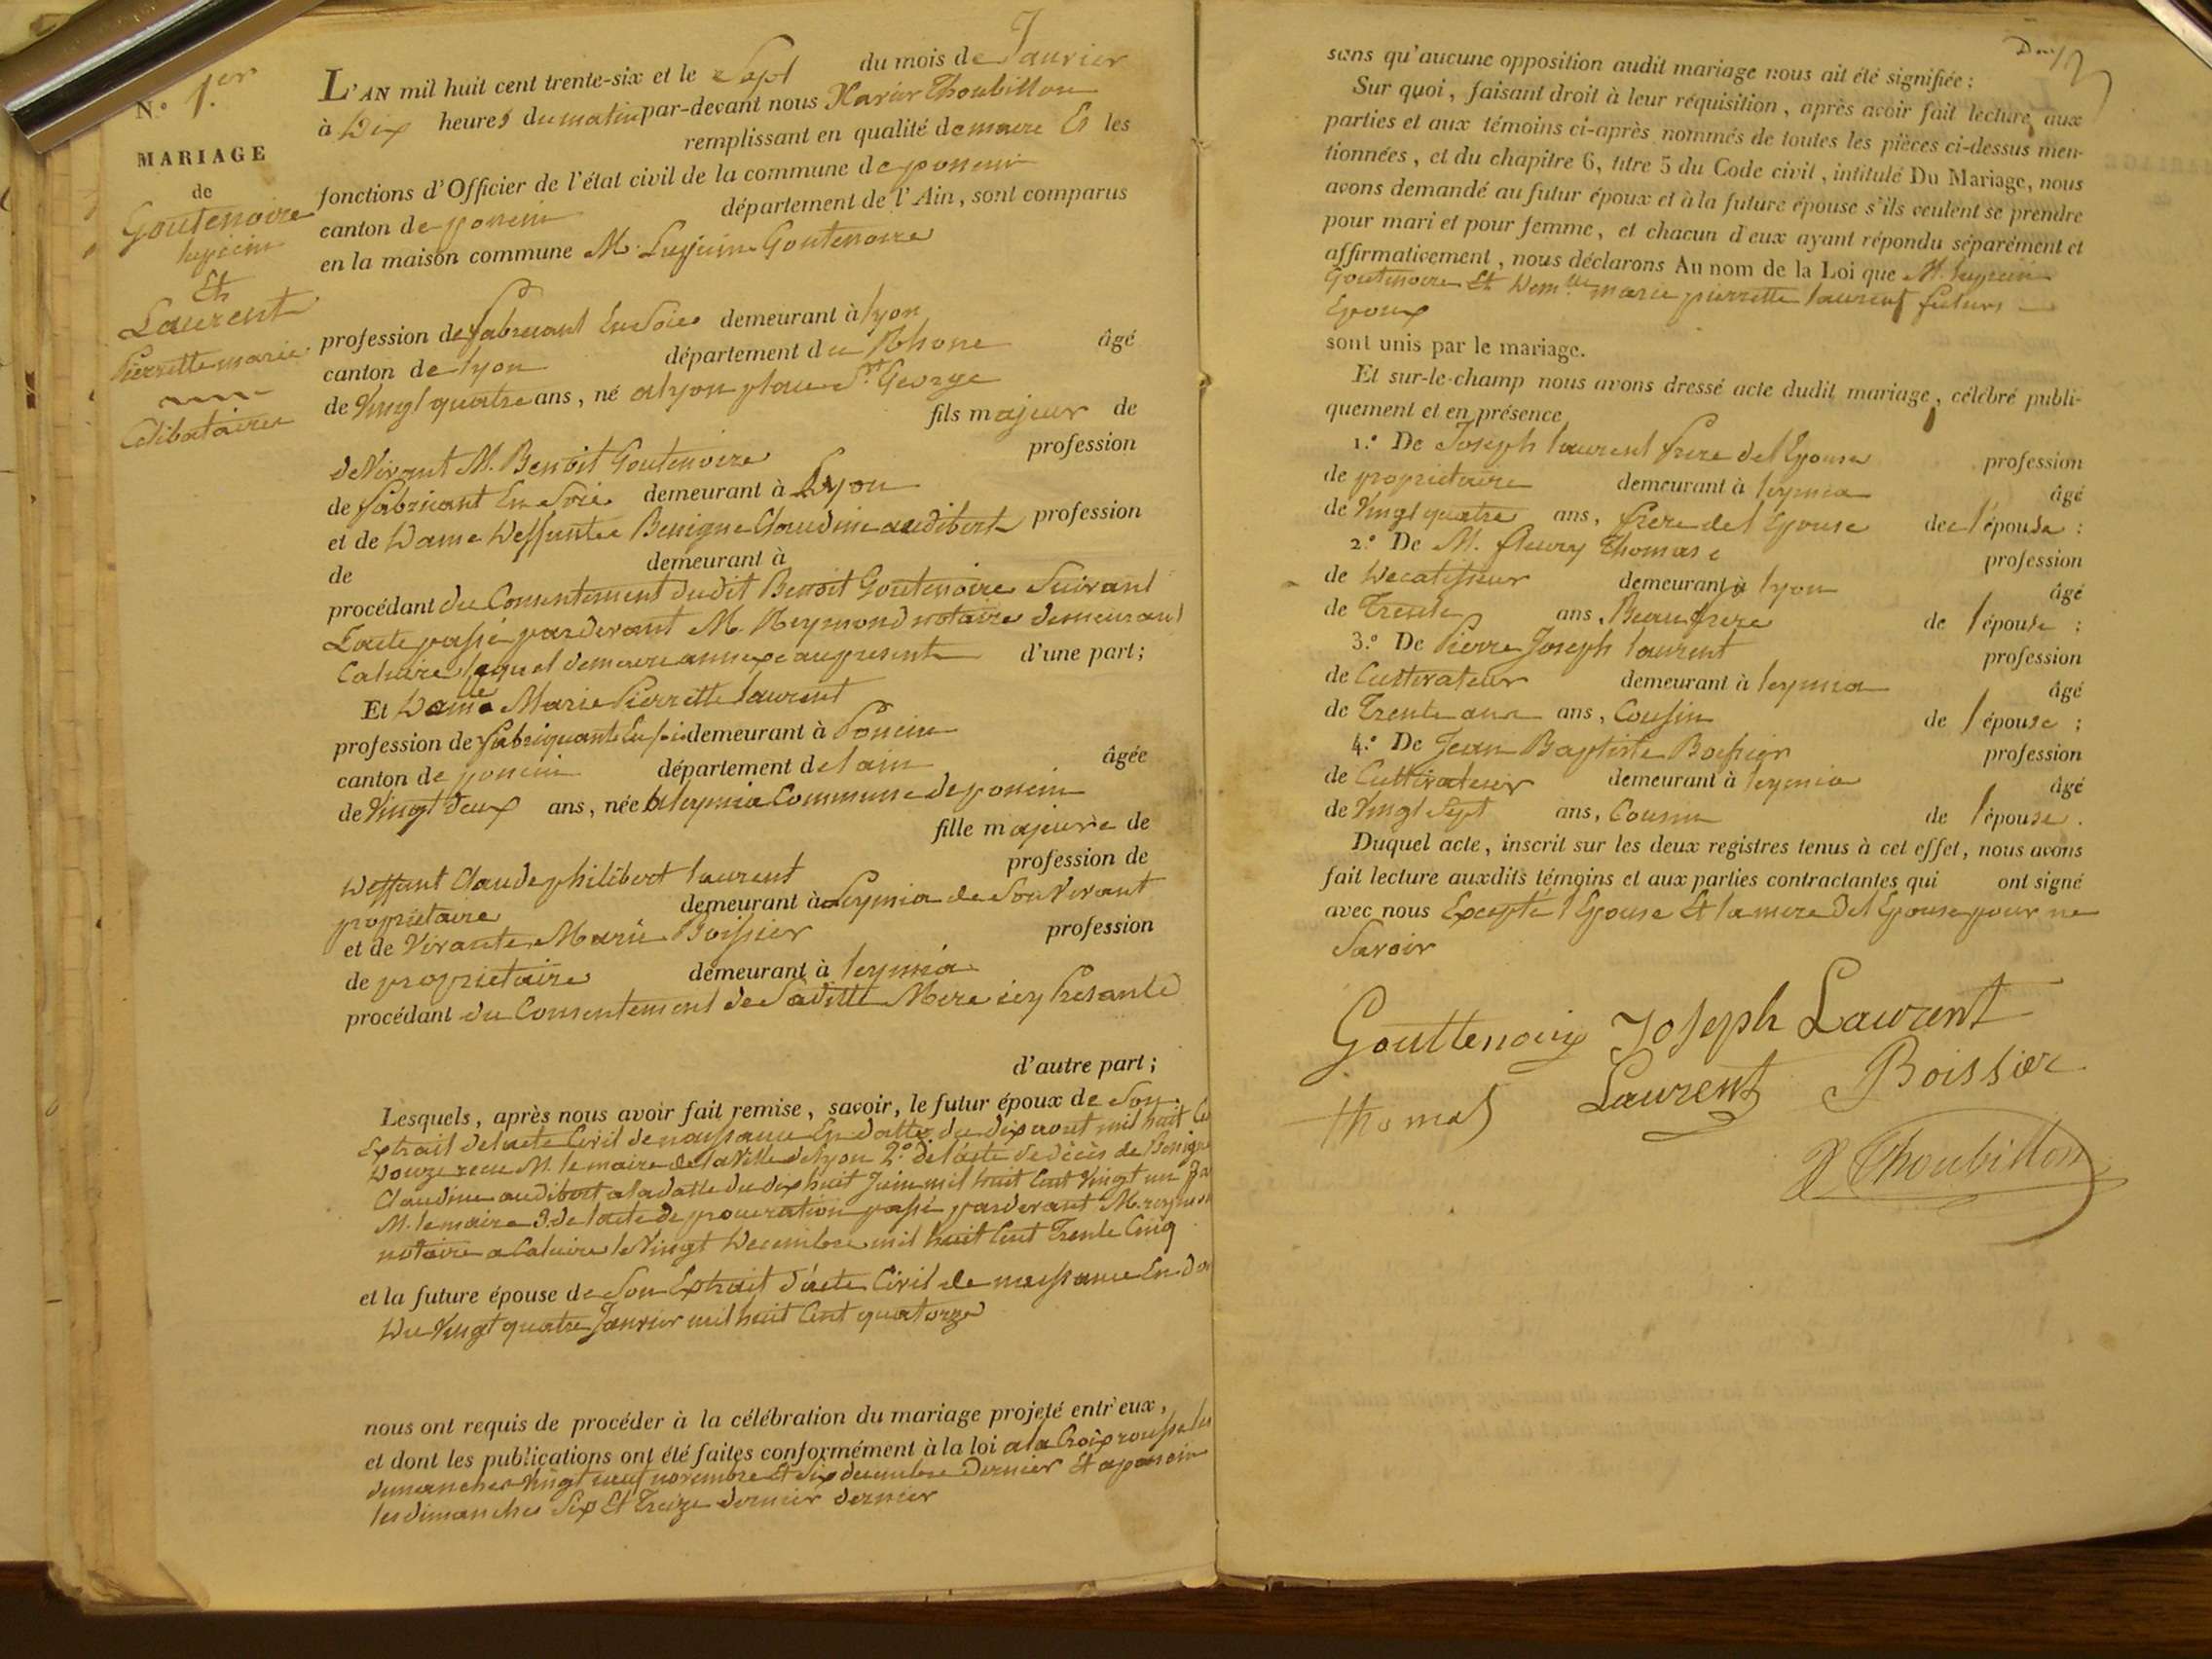 N.º 1.er
MARIAGE
de
Goutenoire
lupicin
Et
Laurent
Pierrette marie
Celibataires
L'AN mil huit cent trente-six et le Sept du mois de Janvier
à Dix heures du matin par-devant nous Xavier Thoubillon
remplissant en qualité de maire Es les
fonctions d'Officier de l'état civil de la commune de poncin
canton de poncin département de l'Ain, sont comparus
en la maison commune M. Lupicin Goutenoire
profession de fabricant En Soie demeurant à lyon
canton de lyon département du Rhone âgé
de Vingt quatre ans, né a lyon place St George
fils majeur de
de Vivant M. Benoit Goutenoire profession
de fabricant En Soie demeurant à Lyon
et de Dame Deffunte Benigne Claudine audibert profession
de demeurant à
procédant du Consentement dudit Benoit Goutenoire Suivant
L'acte passé pardevant M. Reymond notaire demeurant
Caluire lequel demeure annexé au present d'une part;
Et Damlle Marie Pierrette laurent
profession de fabriquante En soie demeurant à Poncin
canton de poncin département de lain âgée
de Vingt deux ans, née a leymia Commune de poncin
fille majeure de
Deffunt Claude philibert laurent profession de
propriétaire demeurant à Leymia de Son Vivant
et de Vivante Marie Boissier profession
de propriétaire demeurant à leymia
procédant du Consentement de Saditte Mere icy presante
d'autre part;
Lesquels, après nous avoir fait remise, savoir, le futur époux de Son
Extrait de lacte Civil de naissance En datte du dix aout mil huit Ce
Douze M. le maire de la Ville de lyon 2.º de l'acte de décès de Benigne
Claudine audibert a la datte du dix huit Juin mil huit Cent Vingt un
M. le maire 3. de lacte de procuration passé pardevant M. reymond
notaire a Caluire le Vingt Decembre mil huit Cent Trente Cinq
et la future épouse de Son Extrait d'acte Civil de naissance En
Du Vingt quatre Janvier mil huit Cent quatorze
nous ont requis de procéder à la célébration du mariage projeté entr'eux,
et dont les publications ont été faites conformément à la loi a la Croix rousse les
dimanches Vingt neuf novembre Et Six decembre Dernier Et a poncin
les dimanches Six Et Treize dernier dernier
sans qu'aucune opposition audit mariage nous ait été signifiée:
Sur quoi, faisant droit à leur réquisition, après avoir fait lecture aux
parties et aux témoins ci-après nommés de toutes les pièces ci-dessus men-
tionnées, et du chapitre 6, titre 5 du Code civil, intitulé Du Mariage, nous
avons demandé au futur époux et à la future épouse s'ils veulent se prendre
pour mari et pour femme, et chacun d'eux ayant répondu séparément et
affirmativement, nous déclarons Au nom de la Loi que M. lupicin
Goutenoire Et Demlle marie pierrette laurent futurs
Epoux
sont unis par le mariage.
Et sur-le-champ nous avons dressé acte dudit mariage, célébré publi-
quement et en présence
1.º De Joseph laurent frere de l'Epouse profession
de propriétaire demeurant à leymia âgé
de Vingt quatre ans, frere de l'Epouse de l'épouse:
2.º De M. fleury Thomas profession
de Decatisseur demeurant à lyon âgé
de Trente ans, Beau frere de l'épouse;
3.º De Pierre Joseph laurent profession
de Cultivateur demeurant à leymia âgé
de Trente ans, Cousin de l'épouse;
4.º De Jean Baptiste Boissier profession
de Cultivateur demeurant à leymia âgé
de Vingt Sept ans, Cousin de l'épouse.
Duquel acte, inscrit sur les deux registres tenus à cet effet, nous avons
fait lecture auxdits témoins et aux parties contractantes qui ont signé
avec nous Excepté l'Epouse Et la mere De l'Epouse pour ne
Savoir
Gouttenoire Joseph Laurent
thomas Laurent Boissier
X Thoubillon